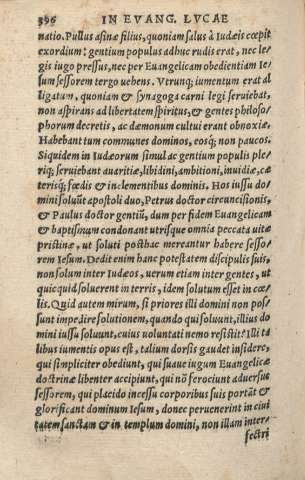 396 IN EVANG. LVCAE
natio. Pullus asinæ filius, quoniam salus à Iudæis cœpit
exordium: gentium populus adhuc rudis erat, nec le-
gis iugo pressus, nec per Euangelicam obedientiam Ie-
sum sessorem tergo uehens. Vtrunq; iumentum erat al
ligatum, quoniam & synagoga carni legi seruiebat,
non aspirans ad libertatem spiritus, & gentes philoso-
phorum decretis, ac dæmonum cultui erant obnoxiæ.
Habebant tum communes dominos, eosq; non paucos.
Siquidem in Iudæorum simul ac gentium populis ple-
riq; seruiebant auaritiæ, libidini, ambitioni, inuidiæ, cæ
terisq; fœdis & inclementibus dominis. Hos iussu do-
mini soluũt apostoli duo, Petrus doctor circuncisionis,
& Paulus doctor gentiũ, dum per fidem Euangelicam
& baptismum condonant utrisque omnia peccata uitæ
pristinæ, ut soluti posthac mereantur habere sesso-
rem Iesum. Dedit enim hanc potestatem discipulis suis,
non solum inter Iudæos, uerum etiam inter gentes, ut
quicquid soluerent in terris, idem solutum esset in cœ-
lis. Quid autem mirum, si priores illi domini non pos-
sunt impedire solutionem, quando qui soluunt, illius do
mini iussu soluunt, cuius uoluntati nemo resistit? Illi ta
libus iumentis opus est, talium dorsis gaudet insidere,
qui simpliciter obediunt, qui suaue iugum Euangelicæ
doctrinæ libenter accipiunt, qui nõ ferociunt aduersus
sessorem, qui placido incessu corporibus suis portãt &
glorificant dominum Iesum, donec peruenerint in ciui
tatem sanctam & in templum domini, non illam inter-
fectri